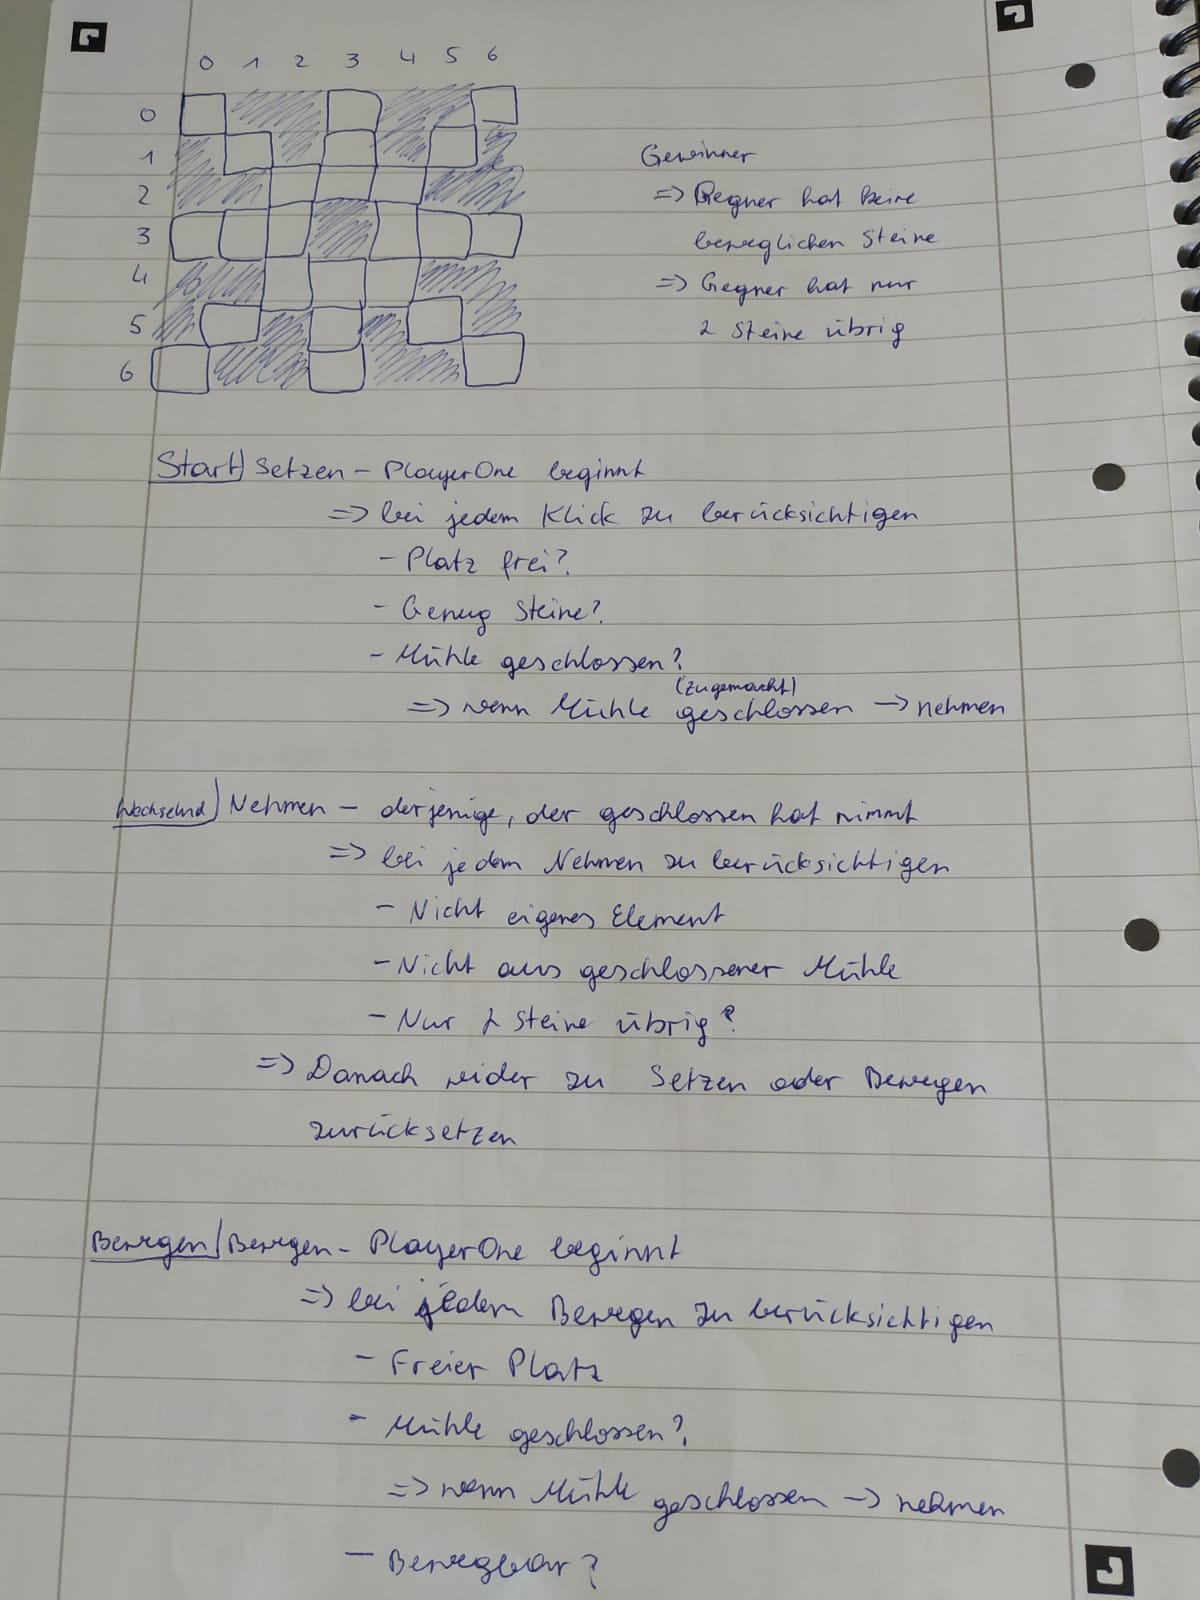 0 1 2 3 4 5 6
0
1
2
3
4
5
6
Gewinner
=> Gegner hat keine
beweglichen Steine
=> Gegner hat nur
2 Steine übrig
Start) Setzen - PlayerOne beginnt
=> bei jedem Klick zu berücksichtigen
- Platz frei?
- Genug Steine?
- Mühle geschlossen?
(zugemacht)
=> wenn Mühle geschlossen -> nehmen
Wechselnd) Nehmen - derjenige, der geschlossen hat nimmt
=> bei jedem Nehmen zu berücksichtigen
- Nicht eigenes Element
- Nicht aus geschlossener Mühle
- Nur 2 Steine übrig?
=> Danach wider zu Setzen oder Bewegen
zurücksetzen
Bewegen) Bewegen - PlayerOne beginnt
=> bei jedem Bewegen zu berücksichtigen
- Freier Platz
- Mühle geschlossen?
=> wenn Mühle geschlossen -> nehmen
- Bewegbar?